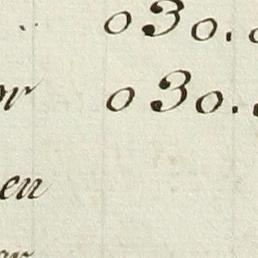 .. 030.
or 030.
en